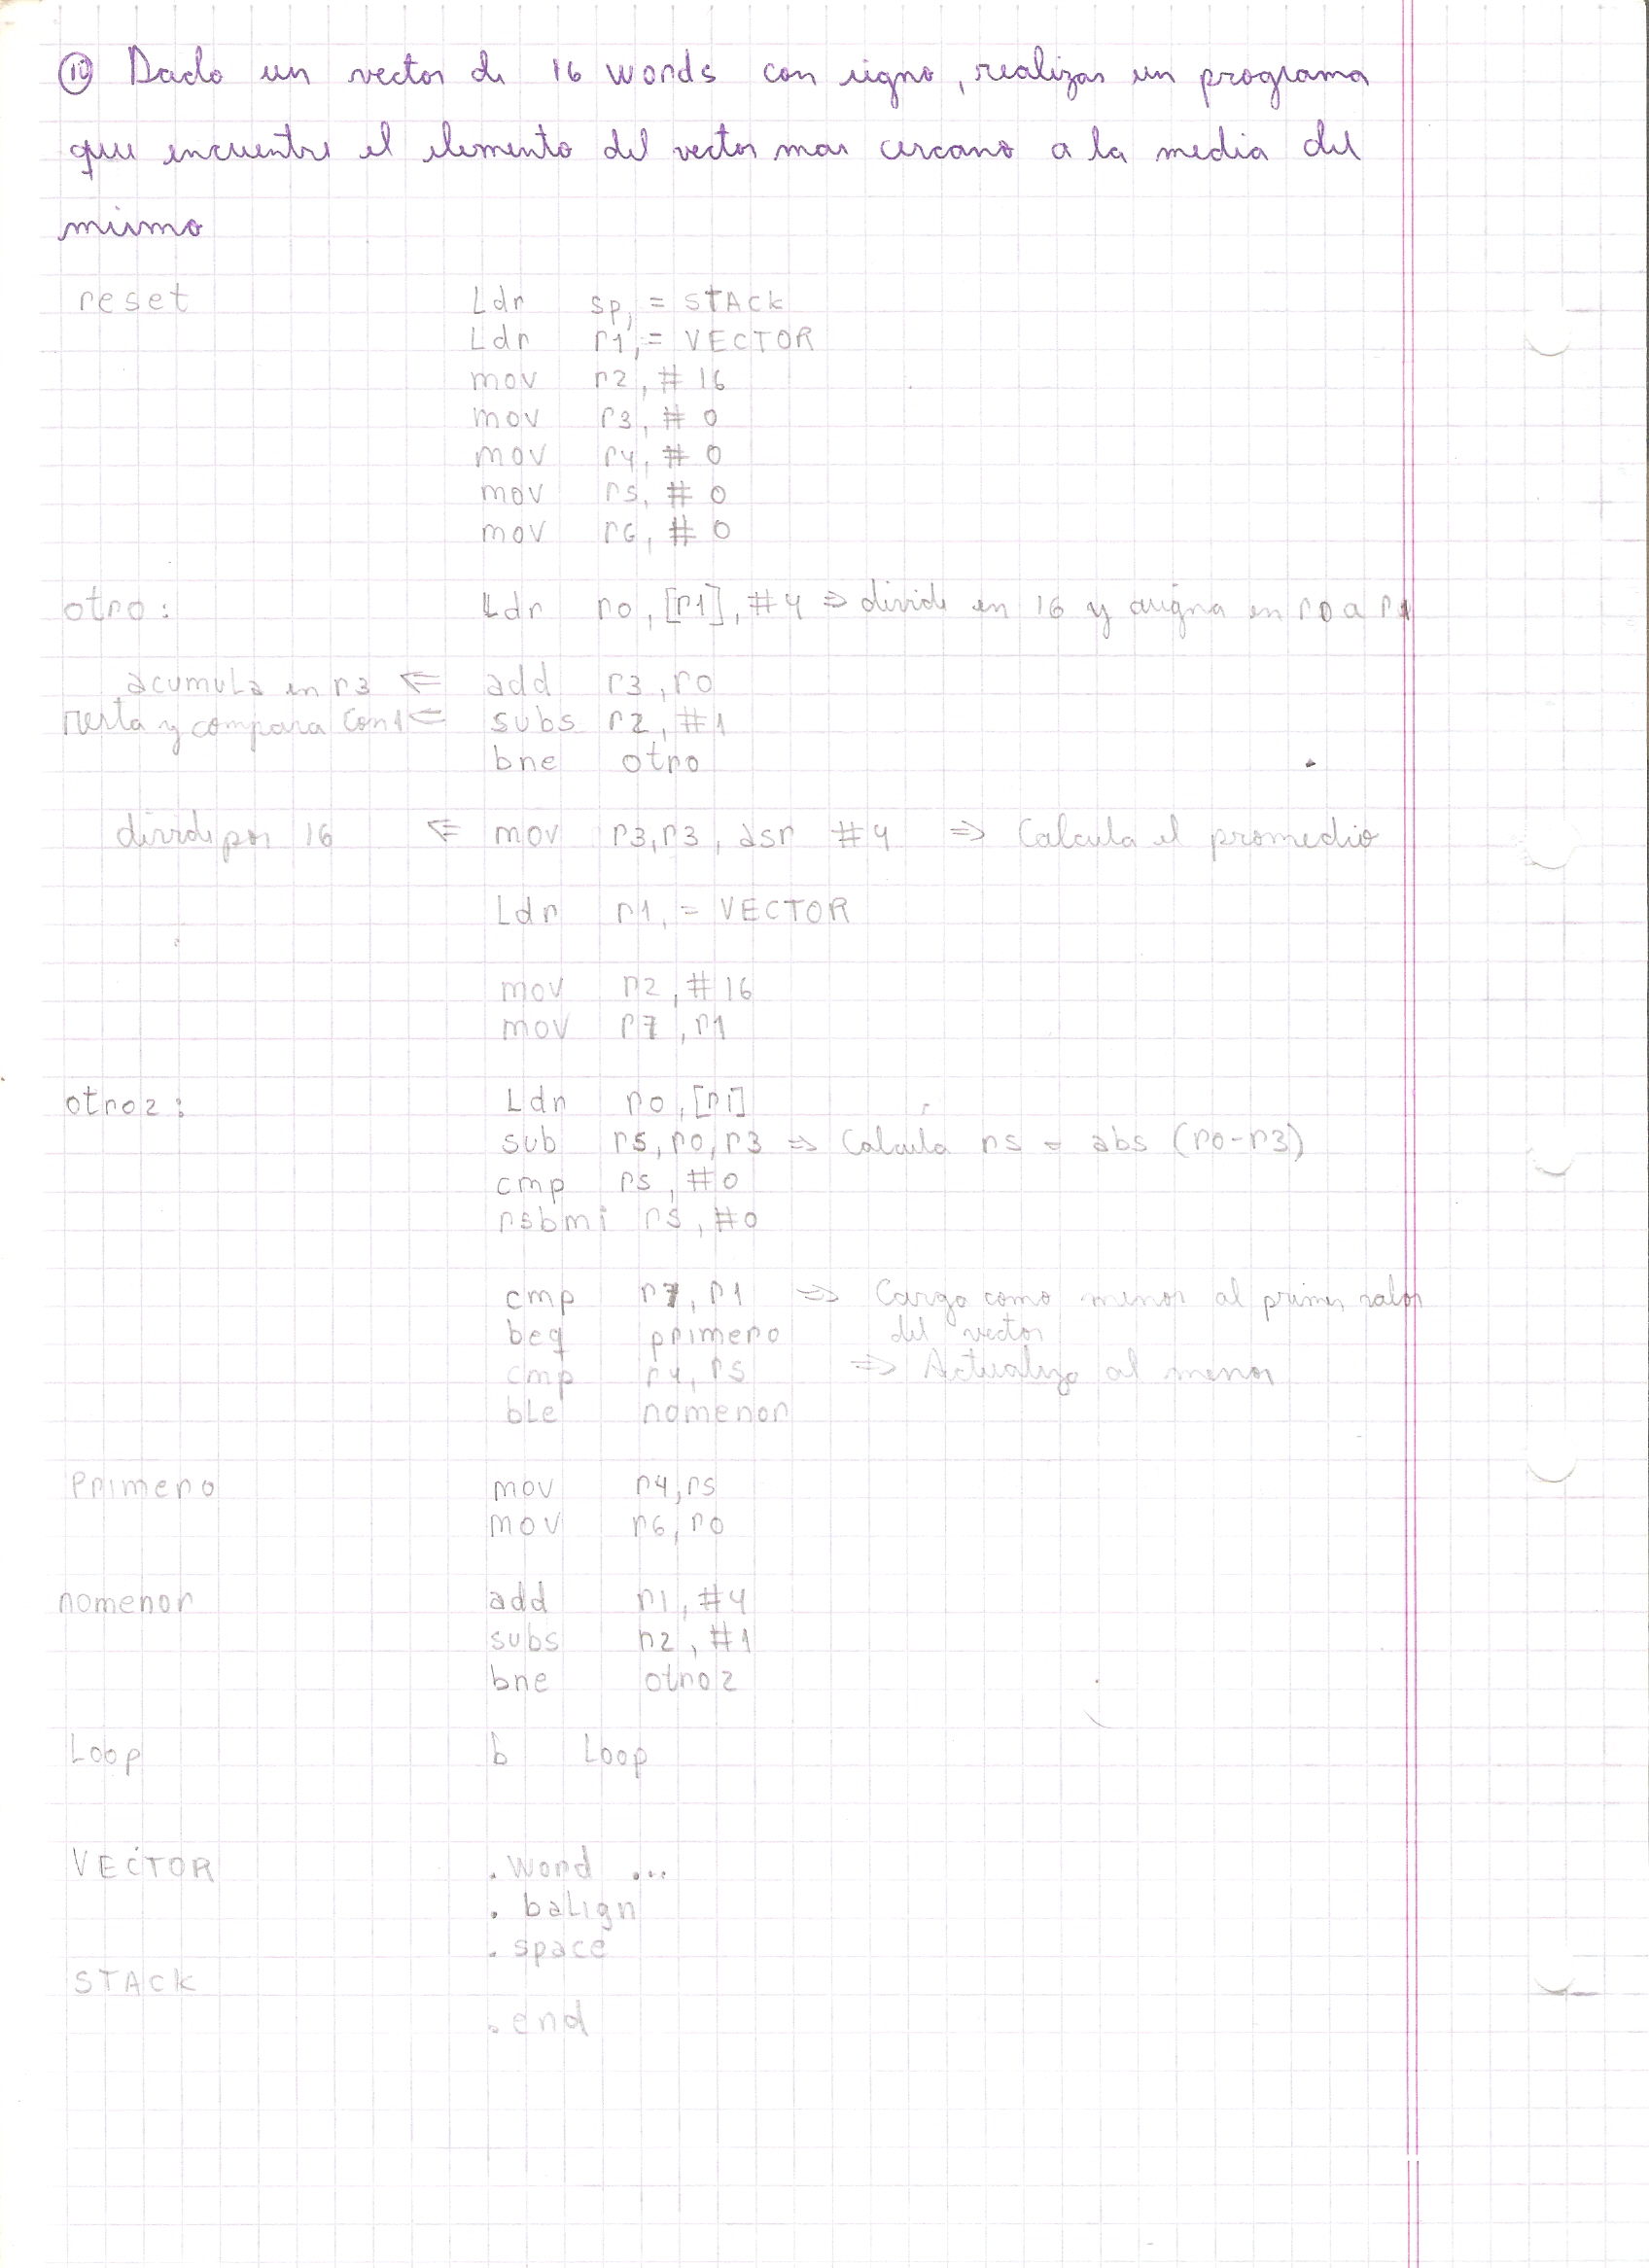 10 Dado un vector de 16 words con signo, realizar un programa
que encuentre el elemento del vector mas cercano a la media del
mismo
reset Ldr sp, = STACK
Ldr r1, = VECTOR
mov r2, # 16
mov r3, # 0
mov r4, # 0
mov r5, # 0
mov r6, # 0
otro: Ldr r0, [r1], #4 ⇒ divide en 16 y asigna en r0 a r1
acumula en r3 ⇐ add r3, r0
resta y compara con 1 ⇐ subs r2, #1
bne otro
divide por 16 ⇐ mov r3, r3, asr #4 ⇒ Calcula el promedio
Ldr r1, = VECTOR
mov r2, #16
mov r7, r1
otro2: Ldr r0, [r1]
sub r5, r0, r3 ⇒ Calcula r5 = abs (r0-r3)
cmp r5, #0
rsbmi r5, #0
cmp r7, r1 ⇒ Cargo como menor al primer valor
beq primero del vector
cmp r4, r5 ⇒ Actualizo al menor
bLe nomenor
Primero mov r4, r5
mov r6, r0
nomenor add r1, #4
subs r2, #1
bne otro2
Loop b Loop
VECTOR .word ...
. baLign
. space
STACK
.end